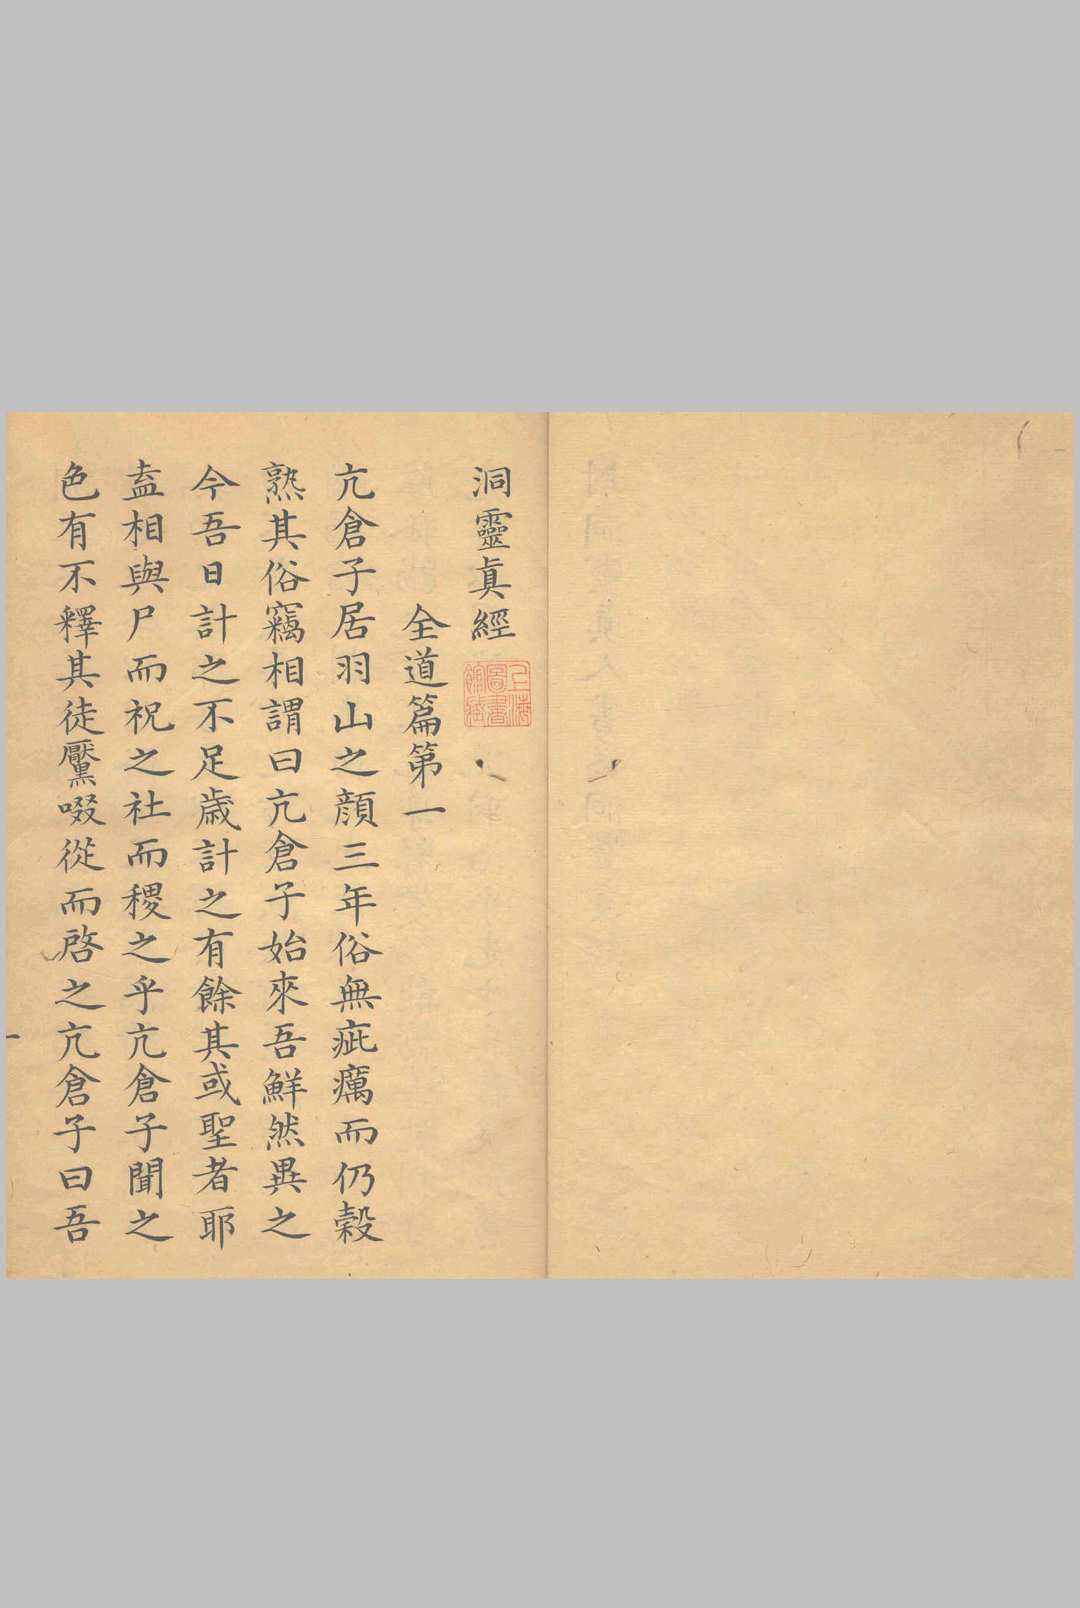 洞靈真經
上海圖書館藏
全道篇第一
亢倉子居羽山之顔三年俗無疵癘而仍穀
熟其俗竊相謂曰亢倉子始來吾鮮然異之
今吾日計之不足歲計之有餘其或聖者耶
盍相與尸而祝之社而稷之乎亢倉子聞之
色有不釋其徒啜從而啓之亢倉子曰吾